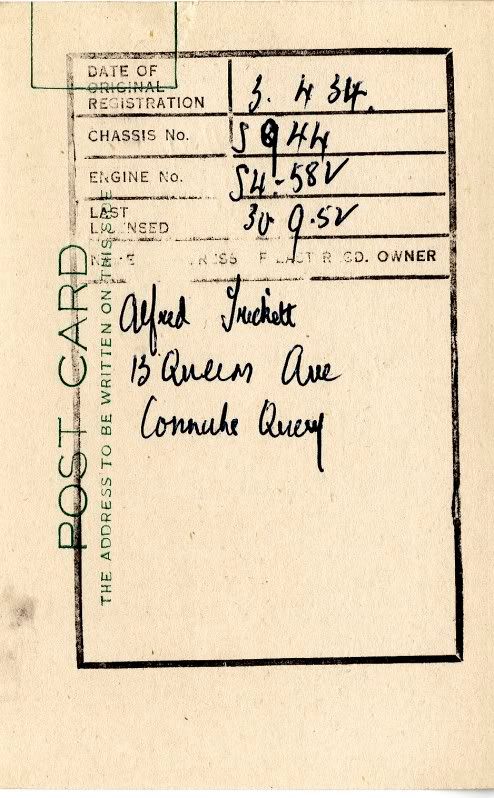 DATE OF
ORIGINAL
REGISTRATION 3. 4 34.
CHASSIS No. S 944
ENGINE No. S4-582
LAST
LICENSED 30 9.52
NAME ADDRESS OF LAST REGD. OWNER
Alfred Trickett
13 Queens Ave
Connahs Quay
POST CARD
THE ADDRESS TO BE WRITTEN ON THIS SIDE